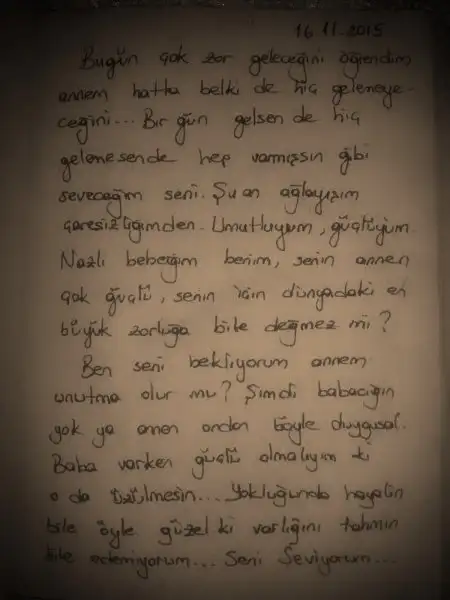 16.11.2015
Bugün çok zor geleceğini öğrendim
annem hatta belki de hiç gelemeye-
ceğini... Bir gün gelsen de hiç
gelemesende hep varmışsın gibi
seveceğim seni. Şu an ağlayışım
çaresizliğimden. Umutluyum, güçlüyüm.
Nazlı bebeğim benim, senin annen
çok güçlü, senin için dünyadaki en
büyük zorluğa bile değmez mi?
Ben seni bekliyorum annem
unutma olur mu? Şimdi babacığın
yok ya annen ondan böyle duygusal.
Baba varken güçlü olmalıyım ki
o da üzülmesin... Yokluğunda hayalin
bile öyle güzel ki varlığını tahmin
bile edemiyorum... Seni Seviyorum...